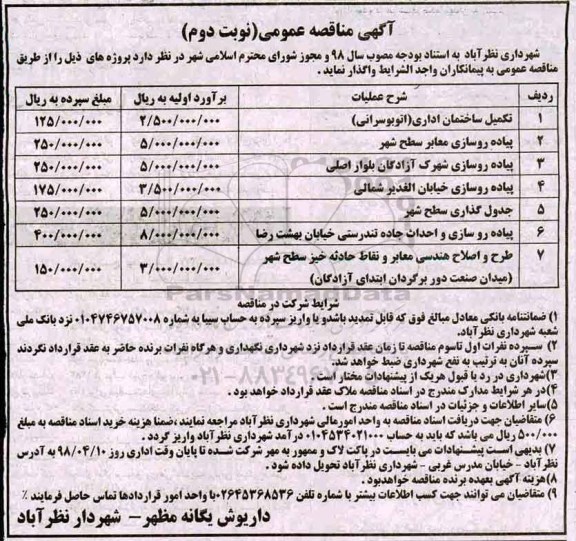 آگهی مناقصه عمومی(نوبت دوم)
شهرداری نظرآباد به استناد بودجه مصوب سال ۹۸ و مجوز شورای محترم اسلامی شهر در نظر دارد پروژه های ذیل را از طریق
مناقصه عمومی به پیمانکاران واجد الشرایط واگذار نماید .
ردیف شرح عملیات برآورد اولیه به ریال مبلغ سپرده به ریال
۱ تکمیل ساختمان اداری(اتوبوسرانی) ۲/۵۰۰/۰۰۰/۰۰۰ ۱۲۵/۰۰۰/۰۰۰
۲ پیاده روسازی معابر سطح شهر ۵/۰۰۰/۰۰۰/۰۰۰ ۲۵۰/۰۰۰/۰۰۰
۳ پیاده روسازی شهرک آزادگان بلوار اصلی ۵/۰۰۰/۰۰۰/۰۰۰ ۲۵۰/۰۰۰/۰۰۰
۴ پیاده روسازی خیابان الغدیر شمالی ۳/۵۰۰/۰۰۰/۰۰۰ ۱۷۵/۰۰۰/۰۰۰
۵ جدول گذاری سطح شهر ۵/۰۰۰/۰۰۰/۰۰۰ ۲۵۰/۰۰۰/۰۰۰
۶ پیاده رو سازی و احداث جاده تندرستی خیابان بهشت رضا ۸/۰۰۰/۰۰۰/۰۰۰ ۴۰۰/۰۰۰/۰۰۰
۷ طرح و اصلاح هندسی معابر و نقاط حادثه خیز سطح شهر
(میدان صنعت دور برگردان ابتدای آزادگان) ۳/۰۰۰/۰۰۰/۰۰۰ ۱۵۰/۰۰۰/۰۰۰
شرایط شرکت در مناقصه
۱) ضمانتنامه بانکی معادل مبالغ فوق که قابل تمدید باشدو یا واریز سپرده به حساب سیبا به شماره ۰۱۰۴۷۴۶۷۵۷۰۰۸ نزد بانک ملی
شعبه شهرداری نظرآباد.
۲) سپرده نفرات اول تاسوم مناقصه تا زمان عقد قرارداد نزد شهرداری نگهداری و هرگاه نفرات برنده حاضر به عقد قرارداد نگردند
سپرده آنان به ترتیب به نفع شهرداری ضبط خواهد شد.
۳)شهرداری در رد یا قبول هریک از پیشنهادات مختار است .
۴)در هر شرایط مدارک مندرج در اسناد مناقصه ملاک عقد قرارداد خواهد بود .
۵)سایر اطلاعات و جزئیات در اسناد مناقصه مندرج است .
۶) متقاضیان جهت دریافت اسناد مناقصه به واحد امورمالی شهرداری نظرآباد مراجعه نمایند ،ضمنا هزینه خرید اسناد مناقصه به مبلغ
۵۰۰/۰۰۰ ریال می باشد که باید به حساب ۰۱۰۴۵۳۴۰۲۱۰۰۰ درآمد شهرداری نظرآباد واریز گردد .
۷) بدیهی است پیشنهادات می بایست در پاکت لاک و ممهور به مهر شرکت شده تا پایان وقت اداری روز ۹۸/۰۴/۱۰ به آدرس
نظرآباد - خیابان مدرس غربی - شهرداری نظرآباد تحویل داده شود .
۸)هزینه آگهی بعهده برنده مناقصه خواهدبود .
۹) متقاضیان می توانند جهت کسب اطلاعات بیشتر با شماره تلفن ۰۲۶۴۵۳۶۸۵۳۶با واحد امور قراردادها تماس حاصل فرمایند ٪
داریوش یگانه مظهر- شهردار نظرآباد